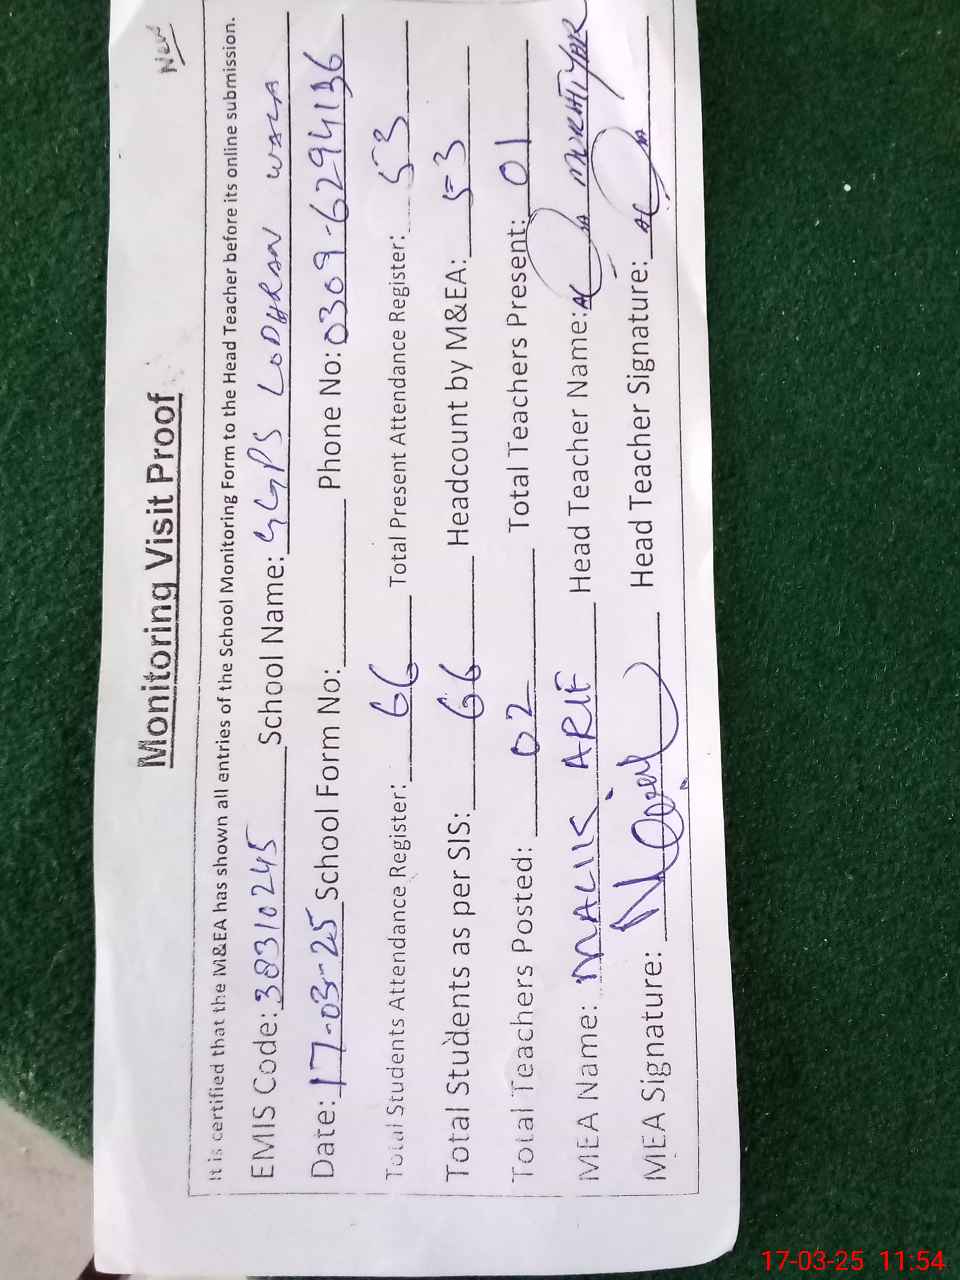 New
Monitoring Visit Proof
It is certified that the M&EA has shown all entries of the School Monitoring Form to the Head Teacher before its online submission.
EMIS Code: 38310245 School Name: GGPS LODHRAN WALA
Date: 17-03-25 School Form No: Phone No: 0309-6294136
Total Students Attendance Register: 66 Total Present Attendance Register: 53
Total Students as per SIS: 66 Headcount by M&EA: 53
Total Teachers Posted: 02 Total Teachers Present: 01
MEA Name: MALIK ARIF Head Teacher Name: MUKHTIYAR
MEA Signature: Head Teacher Signature:
17-03-25 11:54